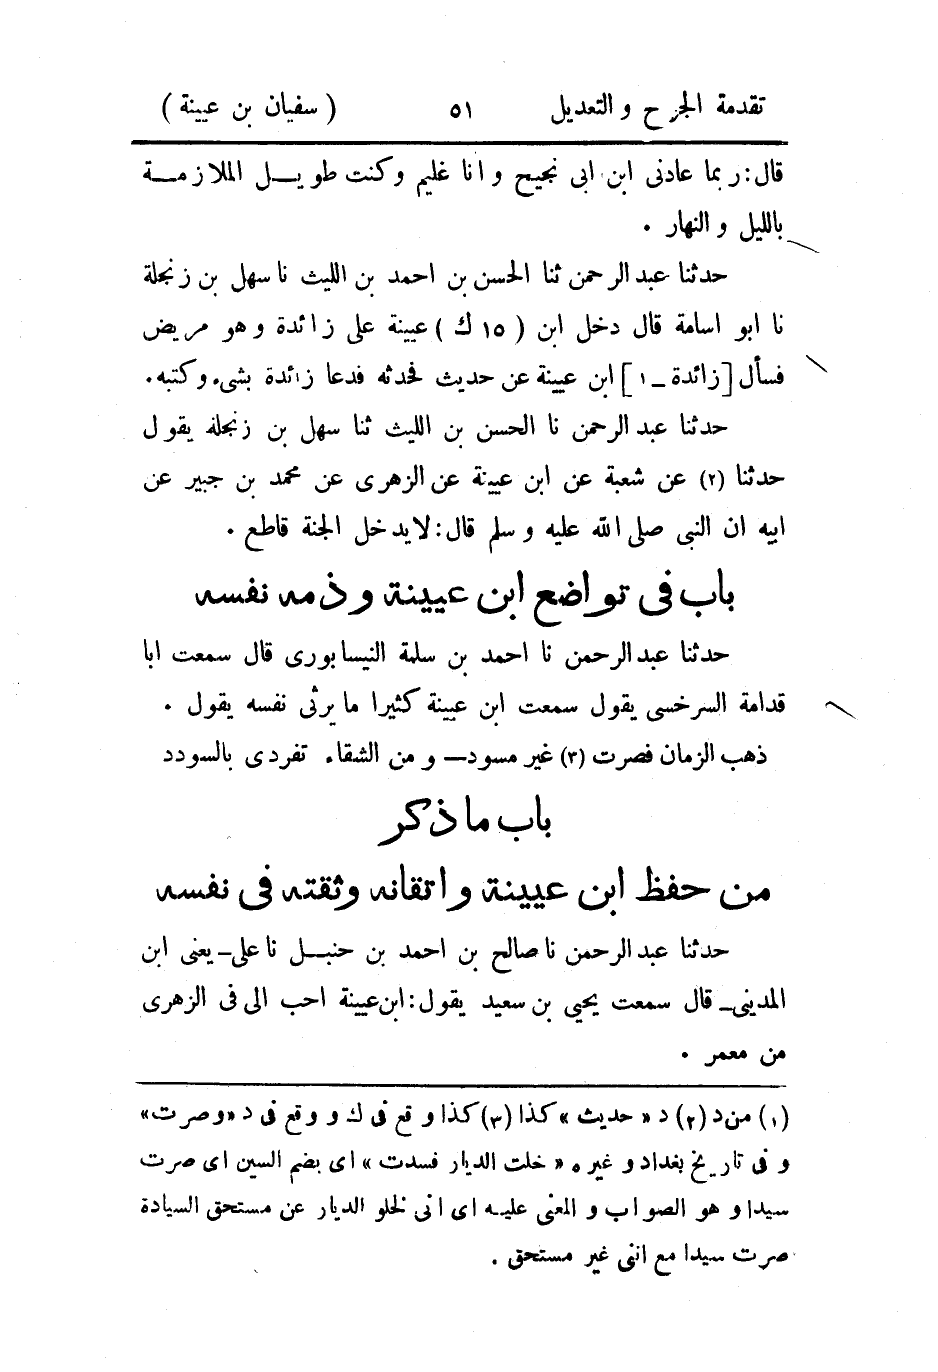 تقدمة الجرح والتعديل ٥١ ( سفيان بن عيينة )
قال: ربما عادنى ابن ابى نجيح وانا غليم وكنت طويل الملازمة
بالليل والنهار .
حدثنا عبد الرحمن ثنا الحسن بن احمد بن الليث نا سهل بن زنجلة
نا ابو اسامة قال دخل ابن ( ١٥ ك ) عيينة على زائدة وهو مريض
فسأل [ زائدة - ١ ] ابن عيينة عن حديث فحدثه فدعا زائدة بشىء وكتبه .
حدثنا عبد الرحمن نا الحسن بن الليث ثنا سهل بن زنجلة يقول
حدثنا (٢) عن شعبة عن ابن عيينة عن الزهرى عن محمد بن جبير عن
ابيه ان النبى صلى الله عليه وسلم قال: لا يدخل الجنة قاطع .
باب فى تواضع ابن عيينة وذمه نفسه
حدثنا عبد الرحمن نا احمد بن سلمة النيسابورى قال سمعت ابا
قدامة السرخسى يقول سمعت ابن عيينة كثيرا ما يرثى نفسه يقول .
ذهب الزمان فصرت (٣) غير مسود — ومن الشقاء تفردى بالسودد
باب ما ذكر
من حفظ ابن عيينة واتقانه وثقته فى نفسه
حدثنا عبد الرحمن نا صالح بن احمد بن حنبل نا على - يعنى ابن
المدينى - قال سمعت يحيى بن سعيد يقول: ابن عيينة احب الى فى الزهرى
من معمر .
(١) من د (٢) د « حديث » كذا (٣) كذا وقع فى ك ووقع فى د « وصرت »
وفى تاريخ بغداد وغيره « خلت الديار فسدت » اى بضم السين اى صرت
سيدا وهو الصواب والمعنى عليه اى انى لخلو الديار عن مستحق السيادة
صرت سيدا مع اننى غير مستحق .